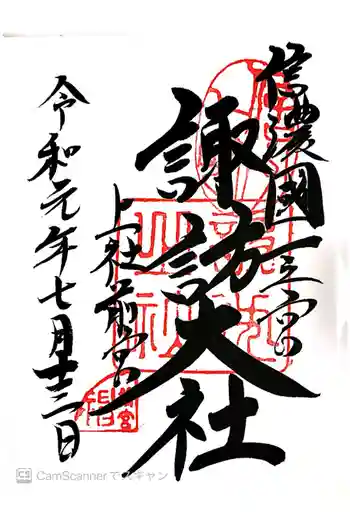 信濃國一之宮
諏訪大社
上社前宮
令和元年七月十三日
CamScannerでスキャン